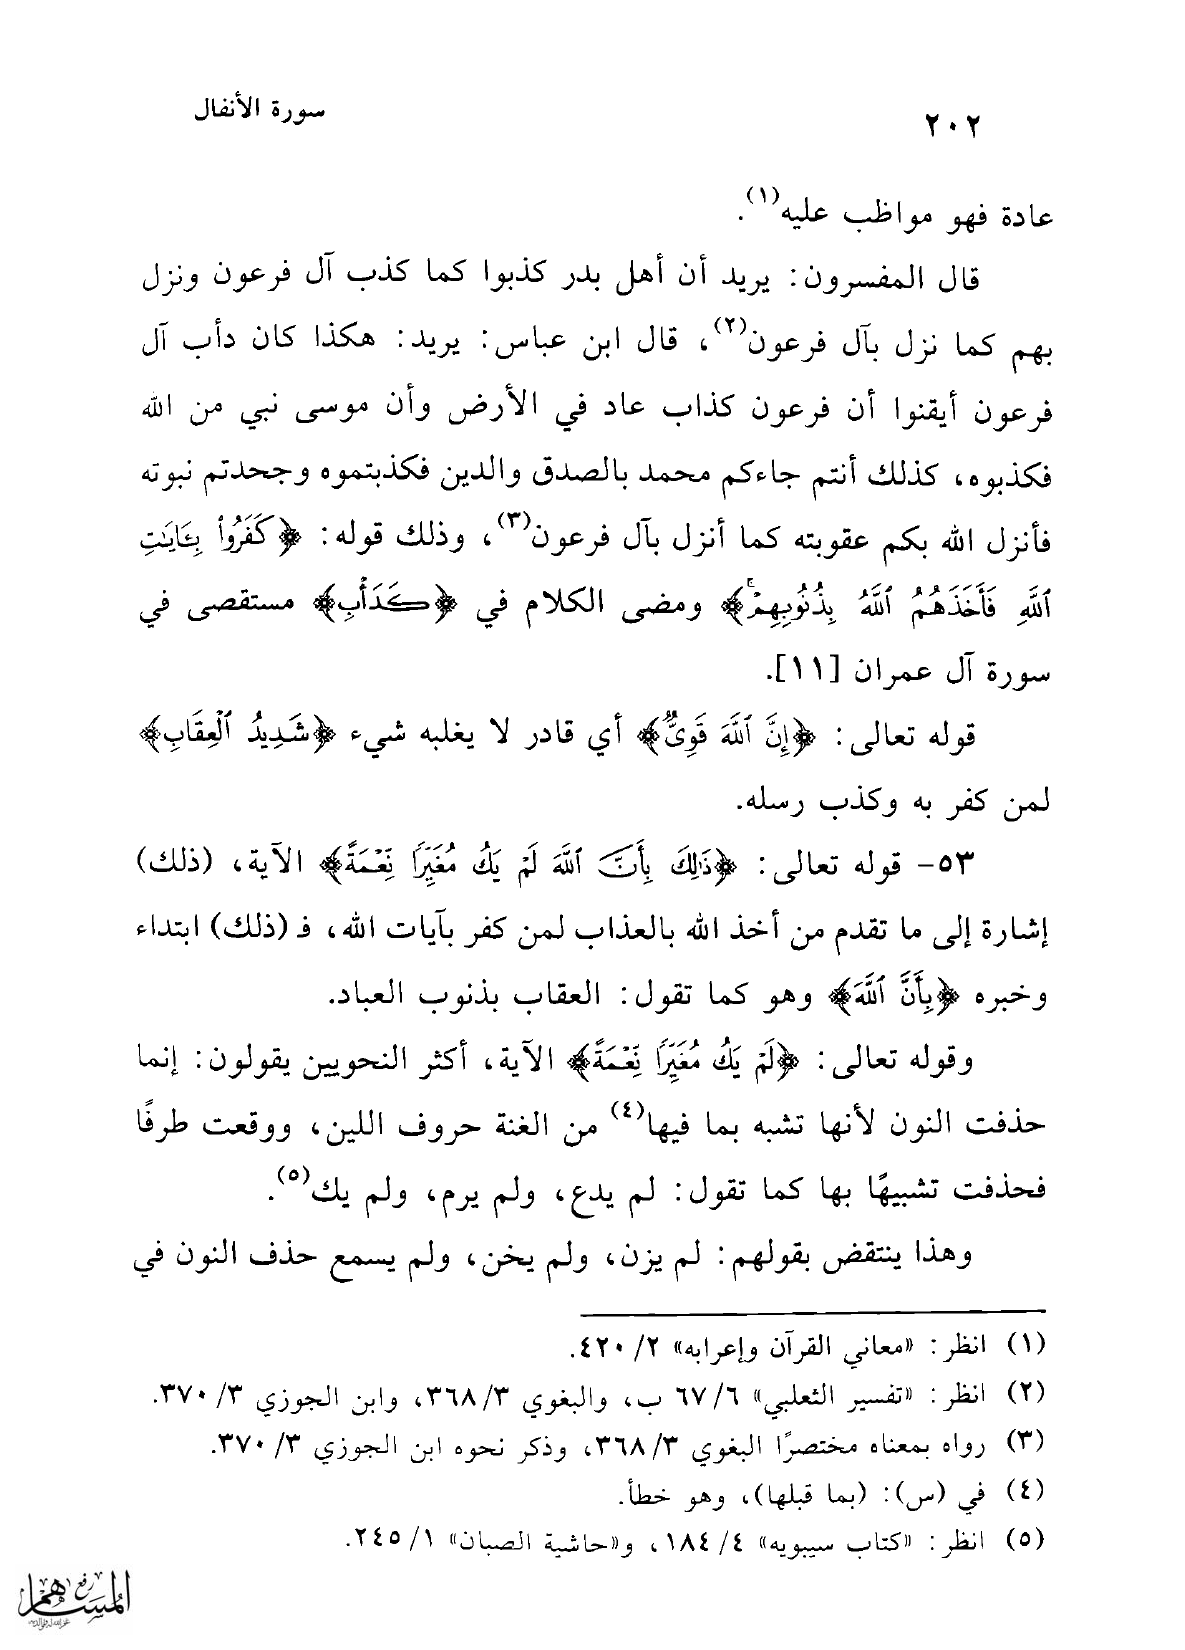 سورة الأنفال
٢٠٢
عادة فهو مواظب عليه(١).
قال المفسرون: يريد أن أهل بدر كذبوا كما كذب آل فرعون ونزل
بهم كما نزل بآل فرعون(٢)، قال ابن عباس: يريد: هكذا كان دأب آل
فرعون أيقنوا أن فرعون كذاب عاد في الأرض وأن موسى نبي من الله
فكذبوه، كذلك أنتم جاءكم محمد بالصدق والدين فكذبتموه وجحدتم نبوته
فأنزل الله بكم عقوبته كما أنزل بآل فرعون(٣)، وذلك قوله: ﴿كَفَرُوا۟ بِـَٔايَـٰتِ
ٱللَّهِ فَأَخَذَهُمُ ٱللَّهُ بِذُنُوبِهِمْ ۚ﴾ ومضى الكلام في ﴿كَدَأْبِ﴾ مستقصى في
سورة آل عمران [١١].
قوله تعالى: ﴿إِنَّ ٱللَّهَ قَوِىٌّ﴾ أي قادر لا يغلبه شيء ﴿شَدِيدُ ٱلْعِقَابِ﴾
لمن كفر به وكذب رسله.
٥٣- قوله تعالى: ﴿ذَٰلِكَ بِأَنَّ ٱللَّهَ لَمْ يَكُ مُغَيِّرًا نِّعْمَةً﴾ الآية، (ذلك)
إشارة إلى ما تقدم من أخذ الله بالعذاب لمن كفر بآيات الله، فـ (ذلك) ابتداء
وخبره ﴿بِأَنَّ ٱللَّهَ﴾ وهو كما تقول: العقاب بذنوب العباد.
وقوله تعالى: ﴿لَمْ يَكُ مُغَيِّرًا نِّعْمَةً﴾ الآية، أكثر النحويين يقولون: إنما
حذفت النون لأنها تشبه بما فيها(٤) من الغنة حروف اللين، ووقعت طرفًا
فحذفت تشبيهًا بها كما تقول: لم يدع، ولم يرم، ولم يك(٥).
وهذا ينتقض بقولهم: لم يزن، ولم يخن، ولم يسمع حذف النون في
(١) انظر: «معاني القرآن وإعرابه» ٢/ ٤٢٠.
(٢) انظر: «تفسير الثعلبي» ٦/ ٦٧ ب، والبغوي ٣/ ٣٦٨، وابن الجوزي ٣/ ٣٧٠.
(٣) رواه بمعناه مختصرًا البغوي ٣/ ٣٦٨، وذكر نحوه ابن الجوزي ٣/ ٣٧٠.
(٤) في (س): (بما قبلها)، وهو خطأ.
(٥) انظر: «كتاب سيبويه» ٤/ ١٨٤، و«حاشية الصبان» ١/ ٢٤٥.
رفع
المساهم